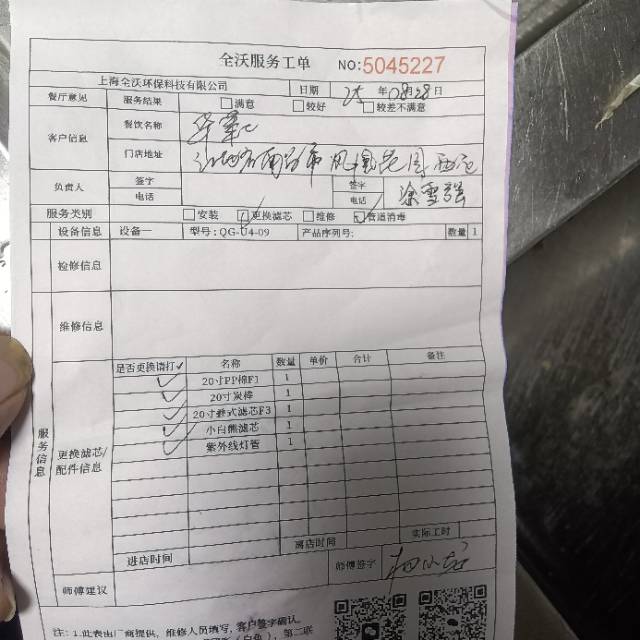 全沃服务工单 NO:5045227
上海全沃环保科技有限公司 日期 25 年 08 28 日
餐厅意见 服务结果 满意 较好 较差不满意
客户信息 餐饮名称
门店地址
负责人 签字 签字
电话 电话
服务类别 安装 更换滤芯 维修 管道消毒
设备信息 设备一 型号:QG-U4-09 产品序列号: 数量 1
检修信息
维修信息
服务信息
更换滤芯/配件信息
是否更换请打✓ 名称 数量 单价 合计 备注
✓ 20寸PP棉F1 1
✓ 20寸炭棒 1
✓ 20寸叠式滤芯F3 1
✓ 小白熊滤芯 1
✓ 紫外线灯管 1
进店时间 离店时间 实际工时
师傅建议 师傅签字
注:1.此表由厂商提供,维修人员填写,客户签字确认.
第二联